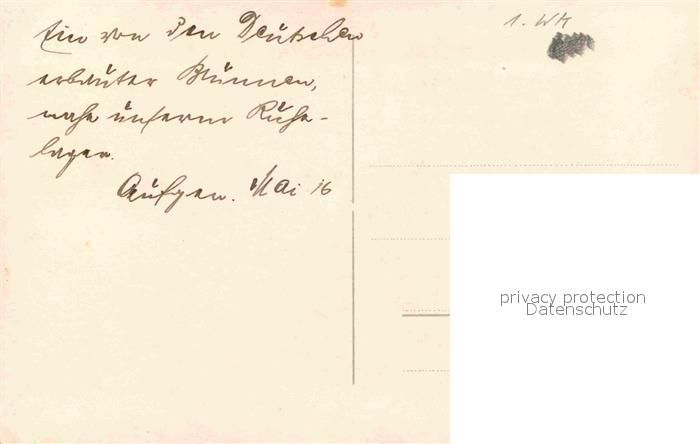 Ein von den Deutschen
erbauter Brunnen,
nahe unserm Ruhe-
lager.
Aufgen. Mai 16
1. WK
privacy protection
Datenschutz